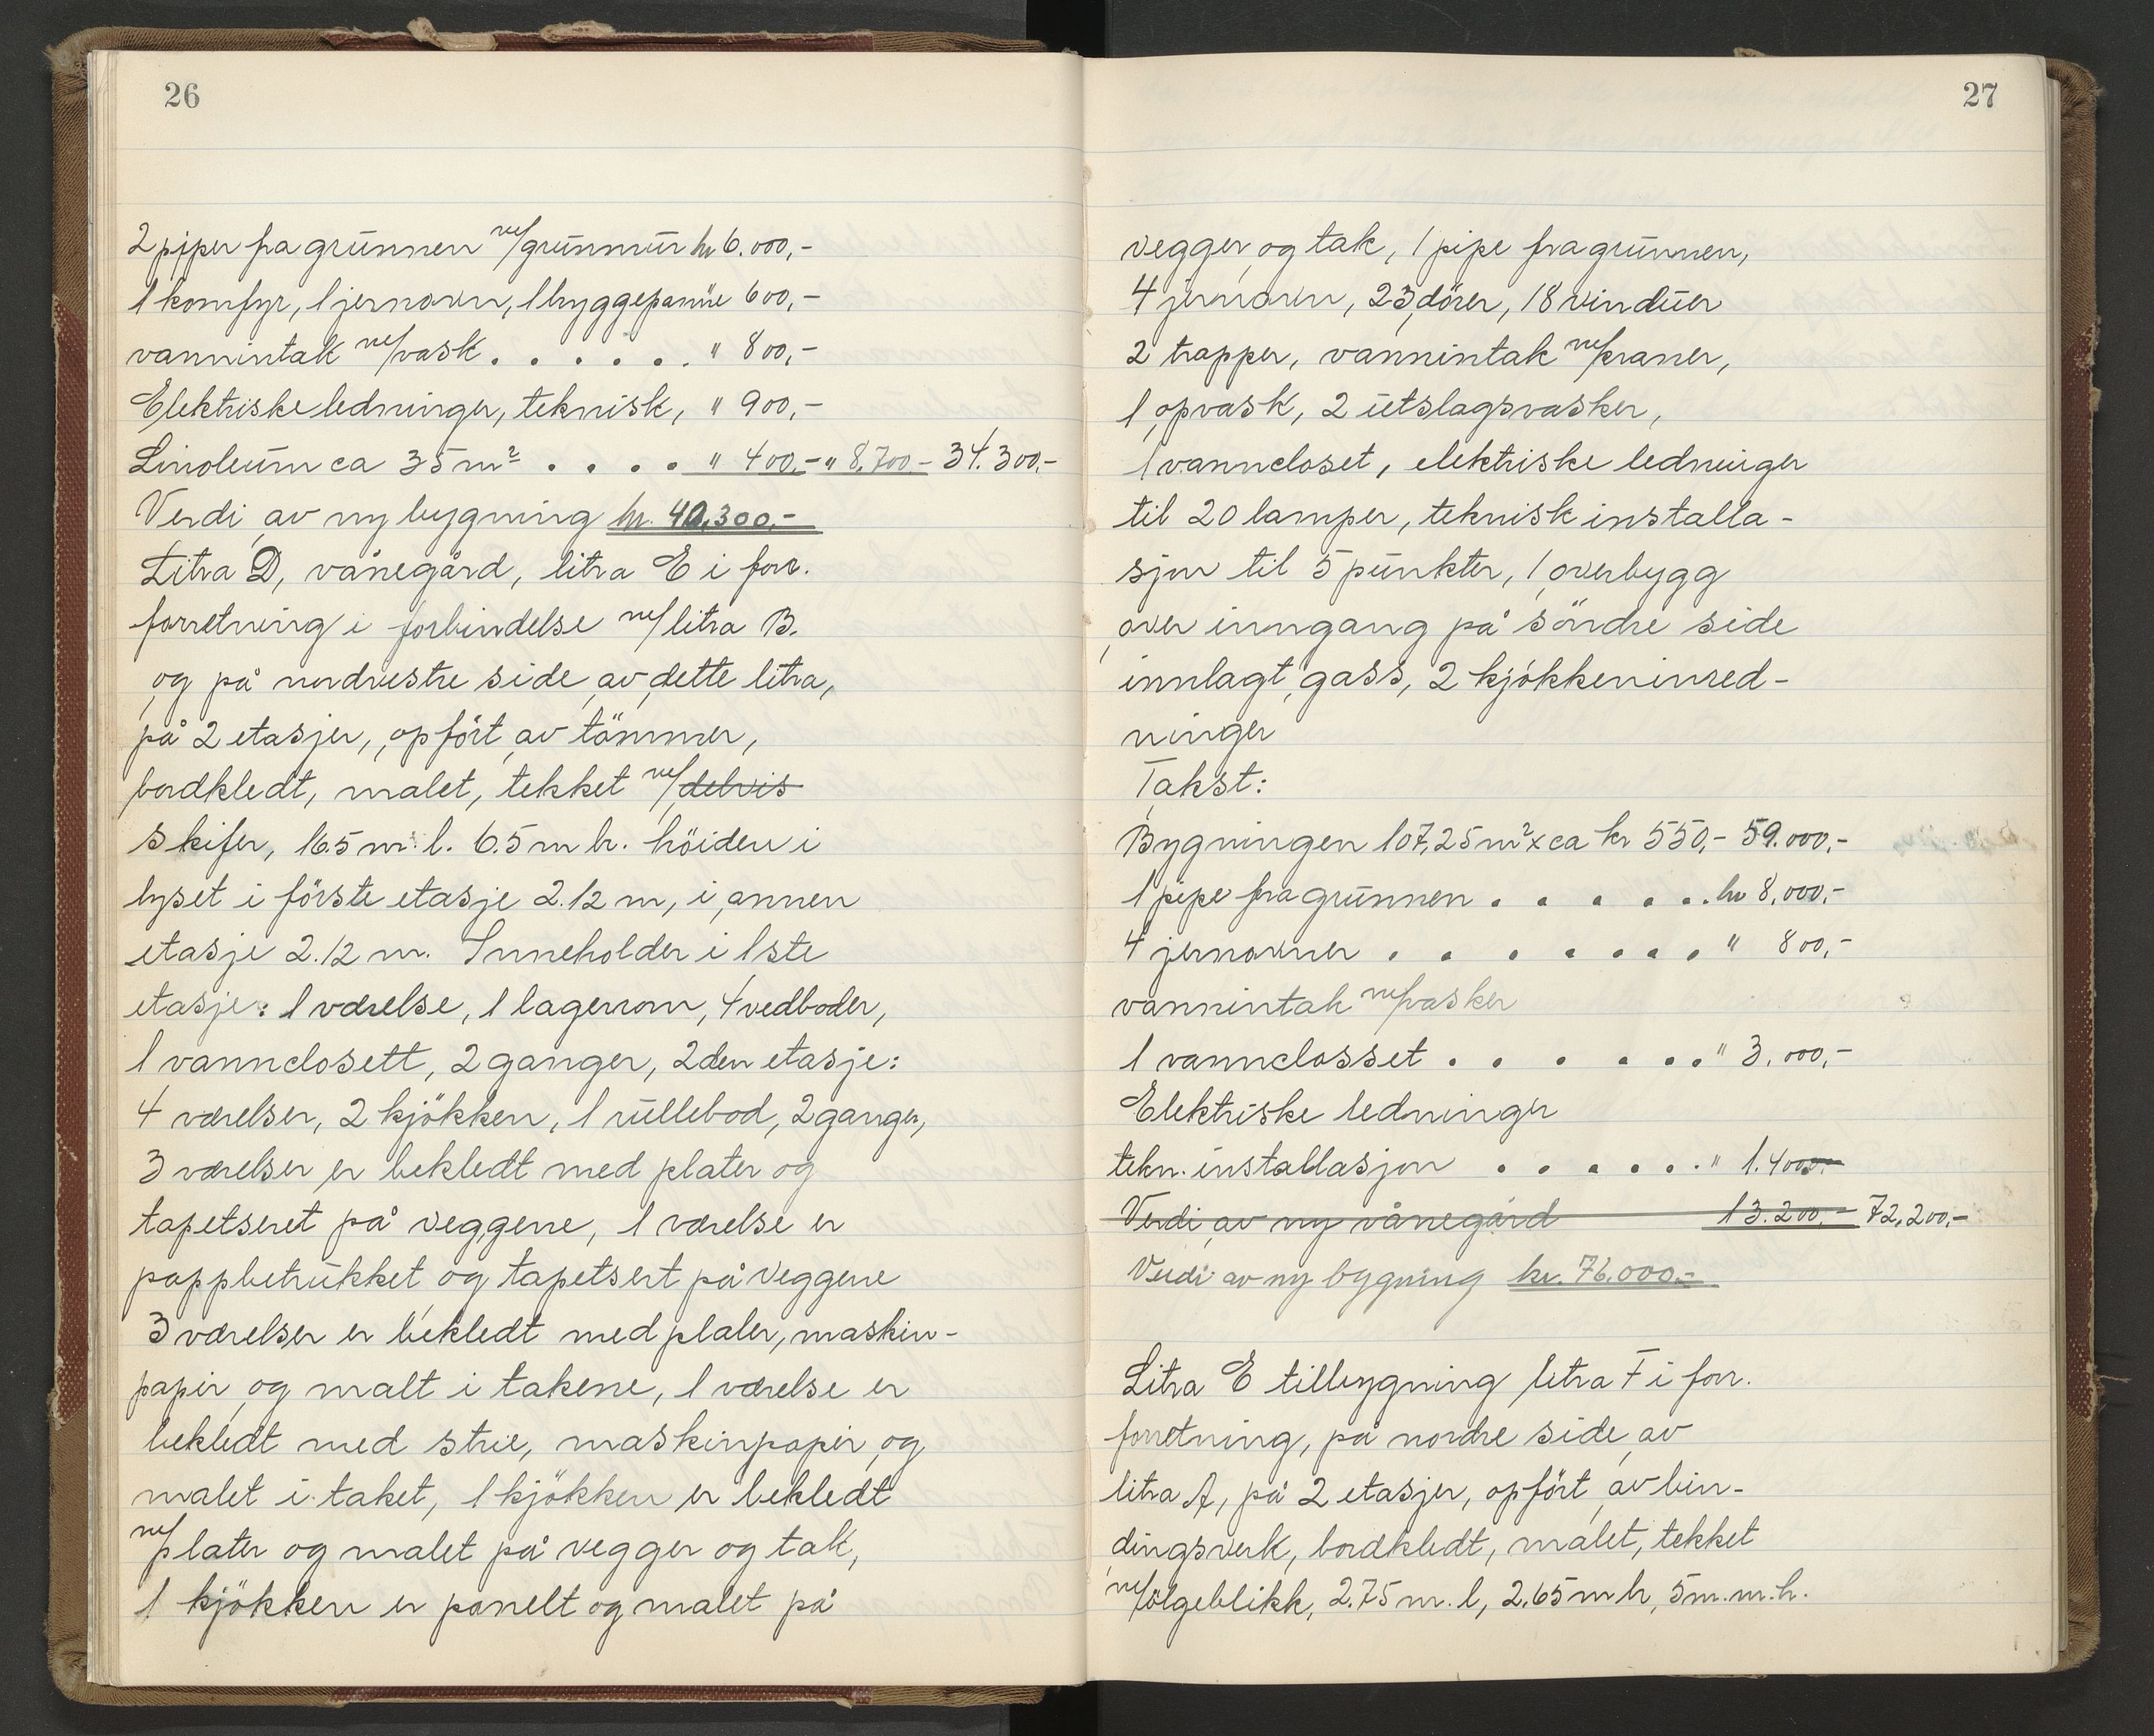 26
2 piper fra grunnen m/grunnmur kr 6.000,-
1 komfyr, 1 jernovn, 1 bryggepanne 600,-
vannintak m/vask . . . . . . " 800,-
Elektriske ledninger, teknisk, " 900,-
Linoleum ca 35 m² . . . . " 400,- " 8,700- 34.300,-
Verdi av ny bygning kr. 40.300.-
Litra D, vånegård, litra E i forr.
forretning i forbindelse m/litra B.
og på nordvestre side av dette litra,
på 2 etasjer, opfört av tömmer,
bordkledt, malet, tekket m/delvis
skifer, 16.5 m. l. 6.5 m br. höiden i
lyset i förste etasje 2.12 m, i annen
etasje 2.12 m. Inneholder i 1ste
etasje: 1 værelse, 1 lagerrom, 4 vedboder,
1 vannclosett, 2 ganger, 2den etasje:
4 værelser, 2 kjökken, 1 rullebod, 2 ganger,
3 værelser er bekledt med plater og
tapetseret på veggene, 1 værelse er
pappbetrukket og tapetsert på veggene
3 værelser er bekledt med plater, maskin-
papir og malt i takene, 1 værelse er
bekledt med strie, maskinpapir og
malet i taket, 1 kjökken er bekledt
m/plater og malet på vegger og tak,
1 kjökken er panelt og malet på
27
vegger og tak, 1 pipe fra grunnen,
4 jernovn, 23 dörer, 18 vinduer
2 trapper, vannintak m/kraner,
1 opvask, 2 utslagsvasker,
1 vanncloset, elektriske ledninger
til 20 lamper, teknisk installa-
sjon til 5 punkter, 1 overbygg
over inngang på söndre side
innlagt gass, 2 kjökkeninred-
ninger
Takst:
Bygningen 107,25 m² x ca kr 550,- 59.000,-
1 pipe fra grunnen . . . . . . kr 8.000,-
4 jernovner . . . . . . . . " 800,-
vannintak m/vasker
1 vannclosset . . . . . . " 3.000,-
Elektriske ledninger
tekn. installasjon . . . . . . " 1.400,-
Verdi av ny vånegård 13.200,- 72,200,-
Verdi av ny bygning kr. 76.000.-
Litra E tilbygning litra F i forr.
forretning, på nordre side av
litra A, på 2 etasjer, opfört av bin-
dingsverk, bordkledt, malet, tekket
m/ölgeblikk, 2.75 m. l, 2.65 m br, 5 m. m. h.